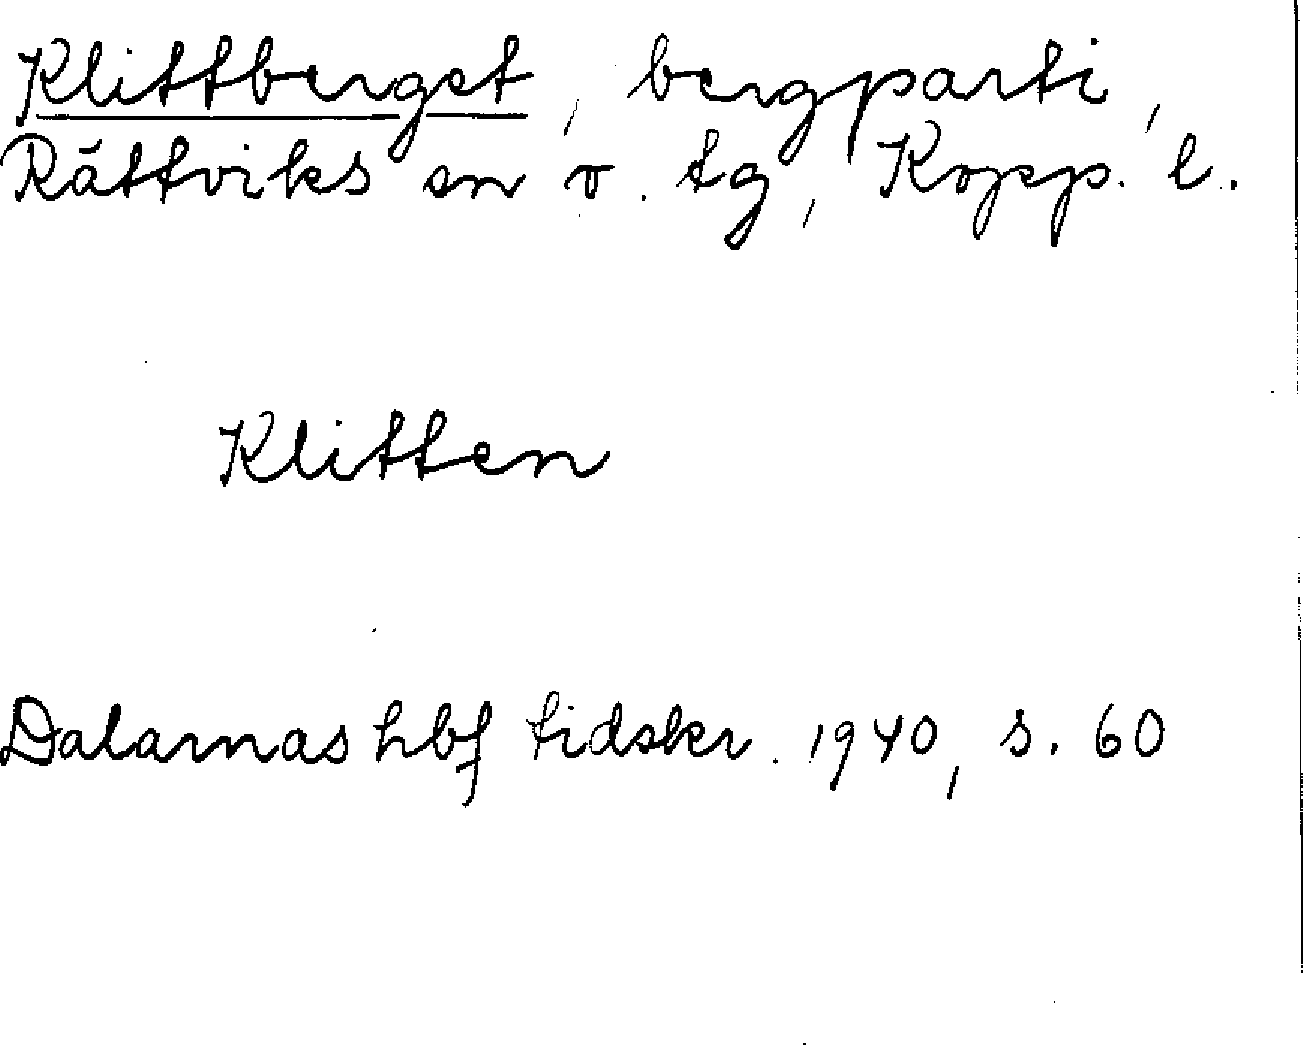 Klittberget, bergparti,
Rättviks sn o. tg, Kopp. l.
Klitten
Dalarnas hbf tidskr. 1940, s. 60